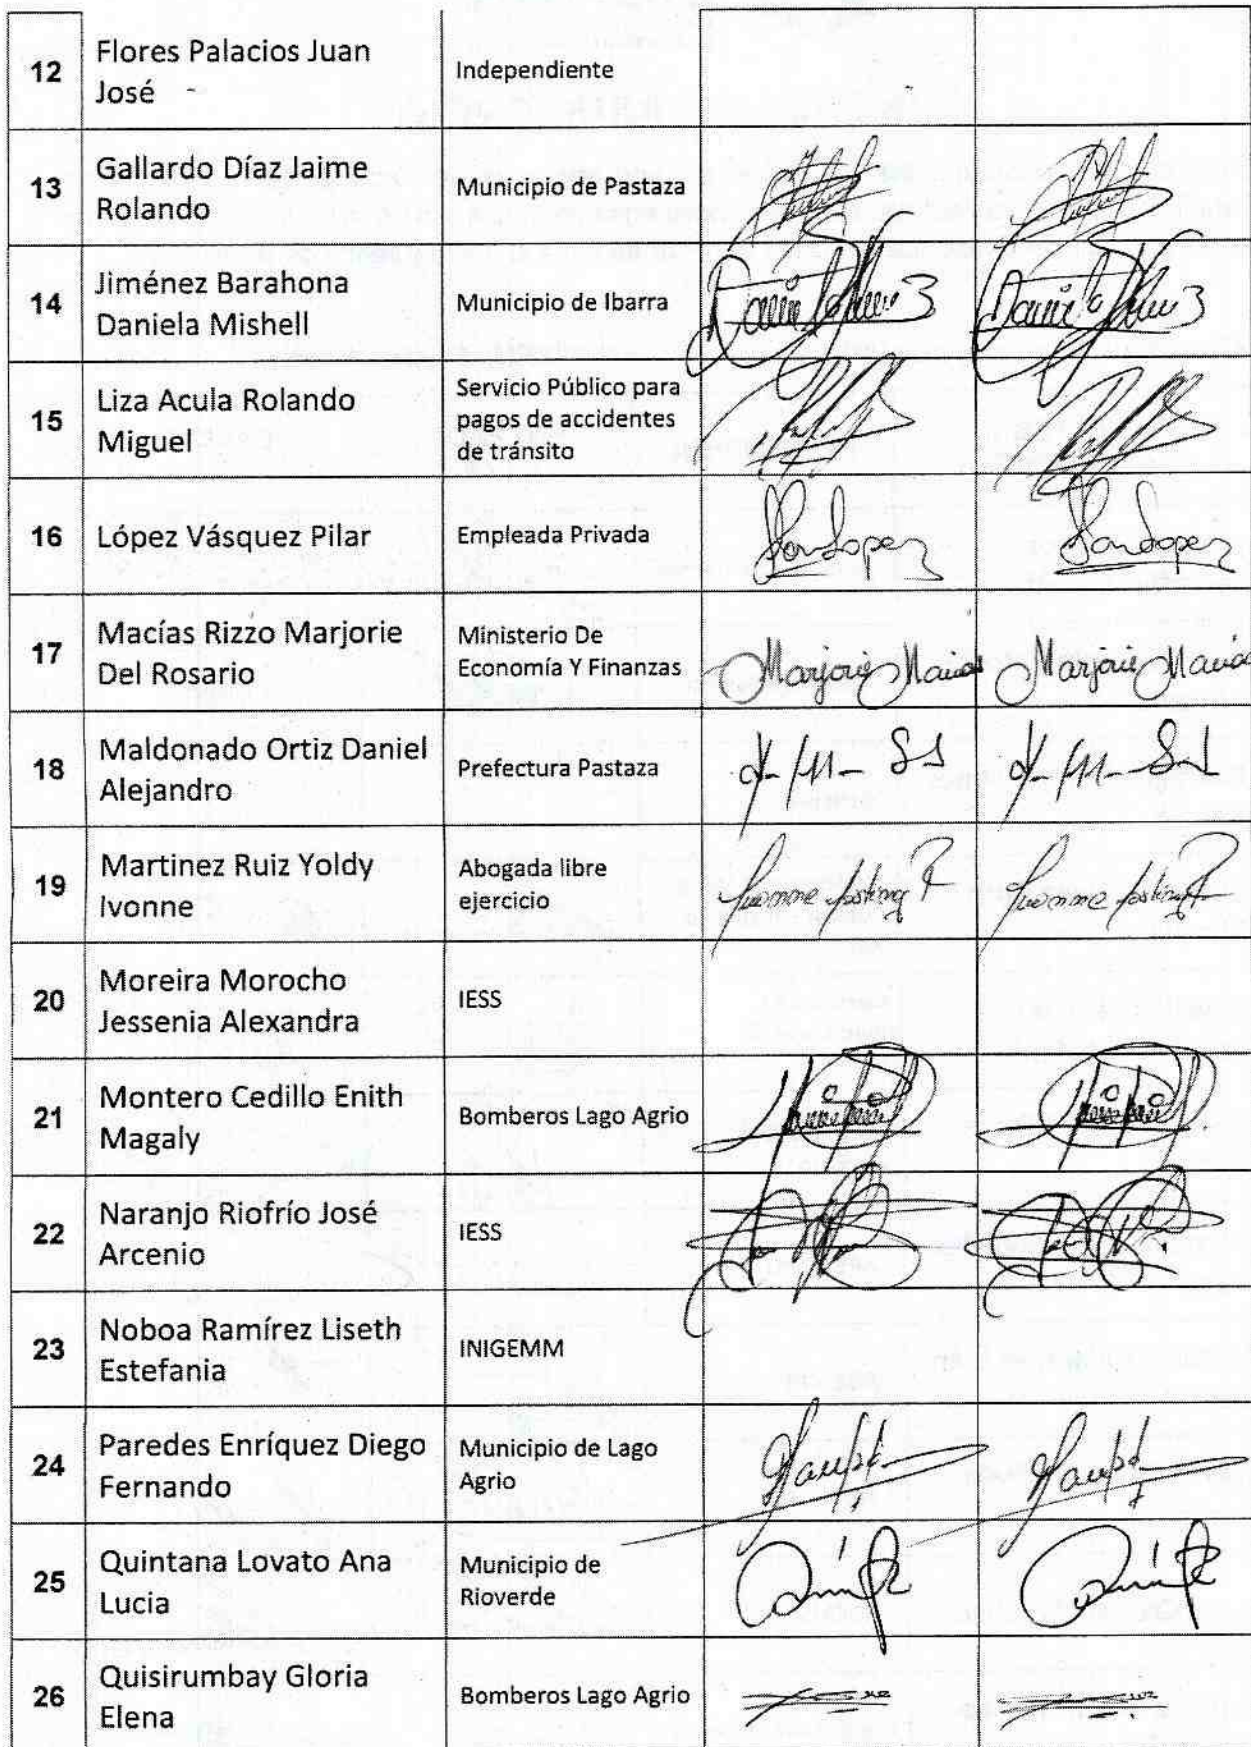 12 Flores Palacios Juan José Independiente
13 Gallardo Díaz Jaime Rolando Municipio de Pastaza
14 Jiménez Barahona Daniela Mishell Municipio de Ibarra
15 Liza Acula Rolando Miguel Servicio Público para pagos de accidentes de tránsito
16 López Vásquez Pilar Empleada Privada
17 Macías Rizzo Marjorie Del Rosario Ministerio De Economía Y Finanzas Marjorie Macías Marjorie Macías
18 Maldonado Ortiz Daniel Alejandro Prefectura Pastaza
19 Martinez Ruiz Yoldy Ivonne Abogada libre ejercicio
20 Moreira Morocho Jessenia Alexandra IESS
21 Montero Cedillo Enith Magaly Bomberos Lago Agrio
22 Naranjo Riofrío José Arcenio IESS
23 Noboa Ramírez Liseth Estefania INIGEMM
24 Paredes Enríquez Diego Fernando Municipio de Lago Agrio
25 Quintana Lovato Ana Lucia Municipio de Rioverde
26 Quisirumbay Gloria Elena Bomberos Lago Agrio